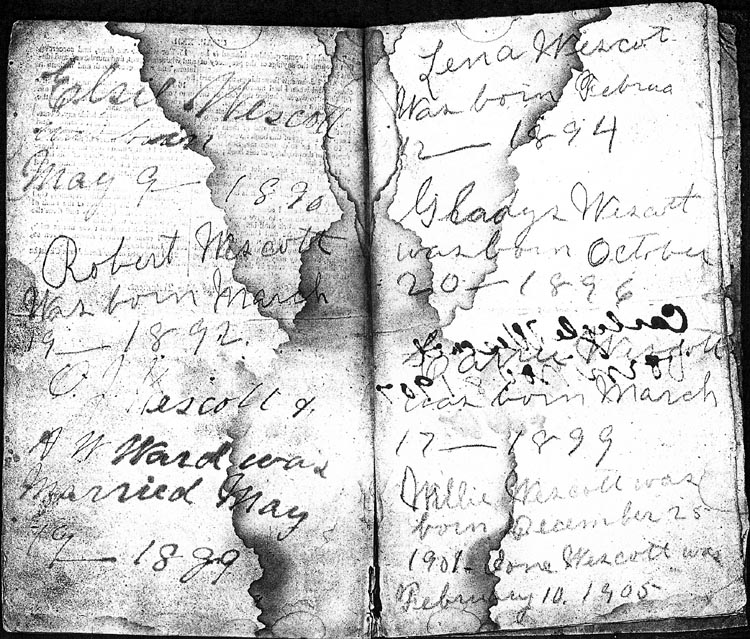 Elsie Wescott
was born
May 9 — 1890
Robert Wescott
Was born March
19 — 1892.
Wescott &
A W Ward was
Married May
19 — 1889
Lena Wescot
Was born Februa
12 — 1894
Gladys Wescott
was born October
20 — 1896
Carlyle
Carrie Wescott
was born March
17 — 1899
Willie Wescott was
born December 25
1901- Wescott was
February 10, 1905